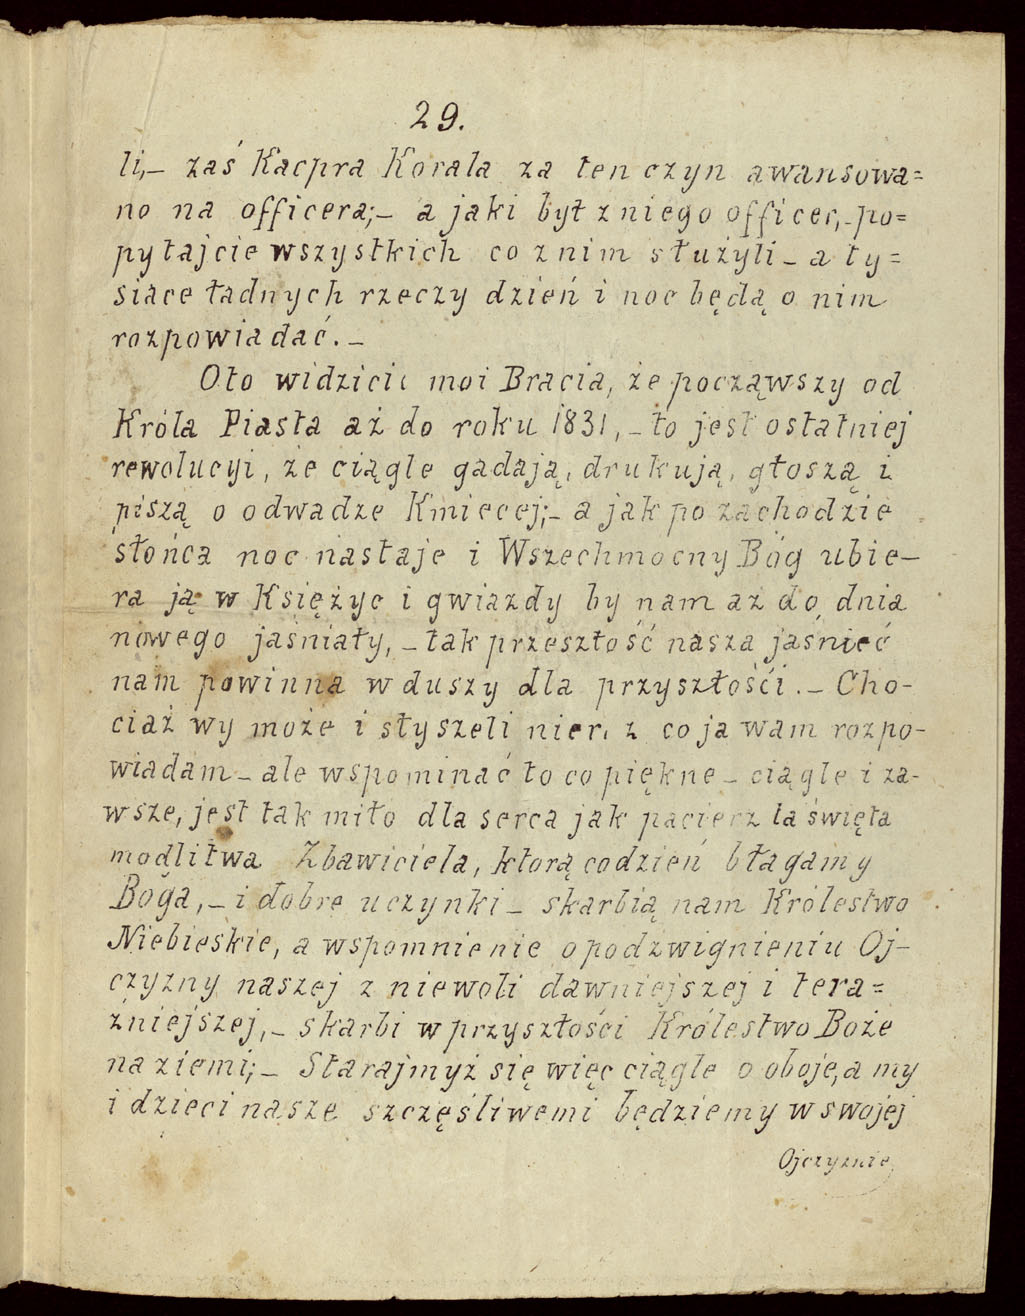 29.
li,– zaś Kacpra Korala za ten czyn awansowa=
no na officera;– a jaki był z niego officer,– po=
pytajcie wszystkich co z nim służyli – a ty=
siące ładnych rzeczy dzień i noc będą o nim
rozpowiadać. –
Oto widzicie moi Bracia, że począwszy od
Króla Piasta aż do roku 1831, – to jest ostatniej
rewolucyi, że ciągle gadają, drukują, głoszą i
piszą o odwadze Kmiecej;– a jak po zachodzie
słońca noc nastaje i Wszechmocny Bóg ubie–
ra ją w Księżyc i gwiazdy by nam aż do dnia
nowego jaśniały, – tak przeszłość nasza jaśnieć
nam powinna w duszy dla przyszłości. – Cho-
ciaż wy może i słyszeli nieraz co ja wam rozpo-
wiadam – ale wspominać to co piękne – ciągle i za-
wsze, jest tak miło dla serca jak pacierz ta święta
modlitwa Zbawiciela, którą codzień błagamy
Boga, – i dobre uczynki – skarbią nam Królestwo
Niebieskie, a wspomnienie o podzwignieniu Oj–
czyzny naszej z niewoli dawniejszej i tera=
zniejszej, – skarbi w przyszłości Królestwo Boże
na ziemi; – Starajmyż się więc ciągle o oboje, a my
i dzieci nasze szczęśliwemi będziemy w swojej
Ojczyznie